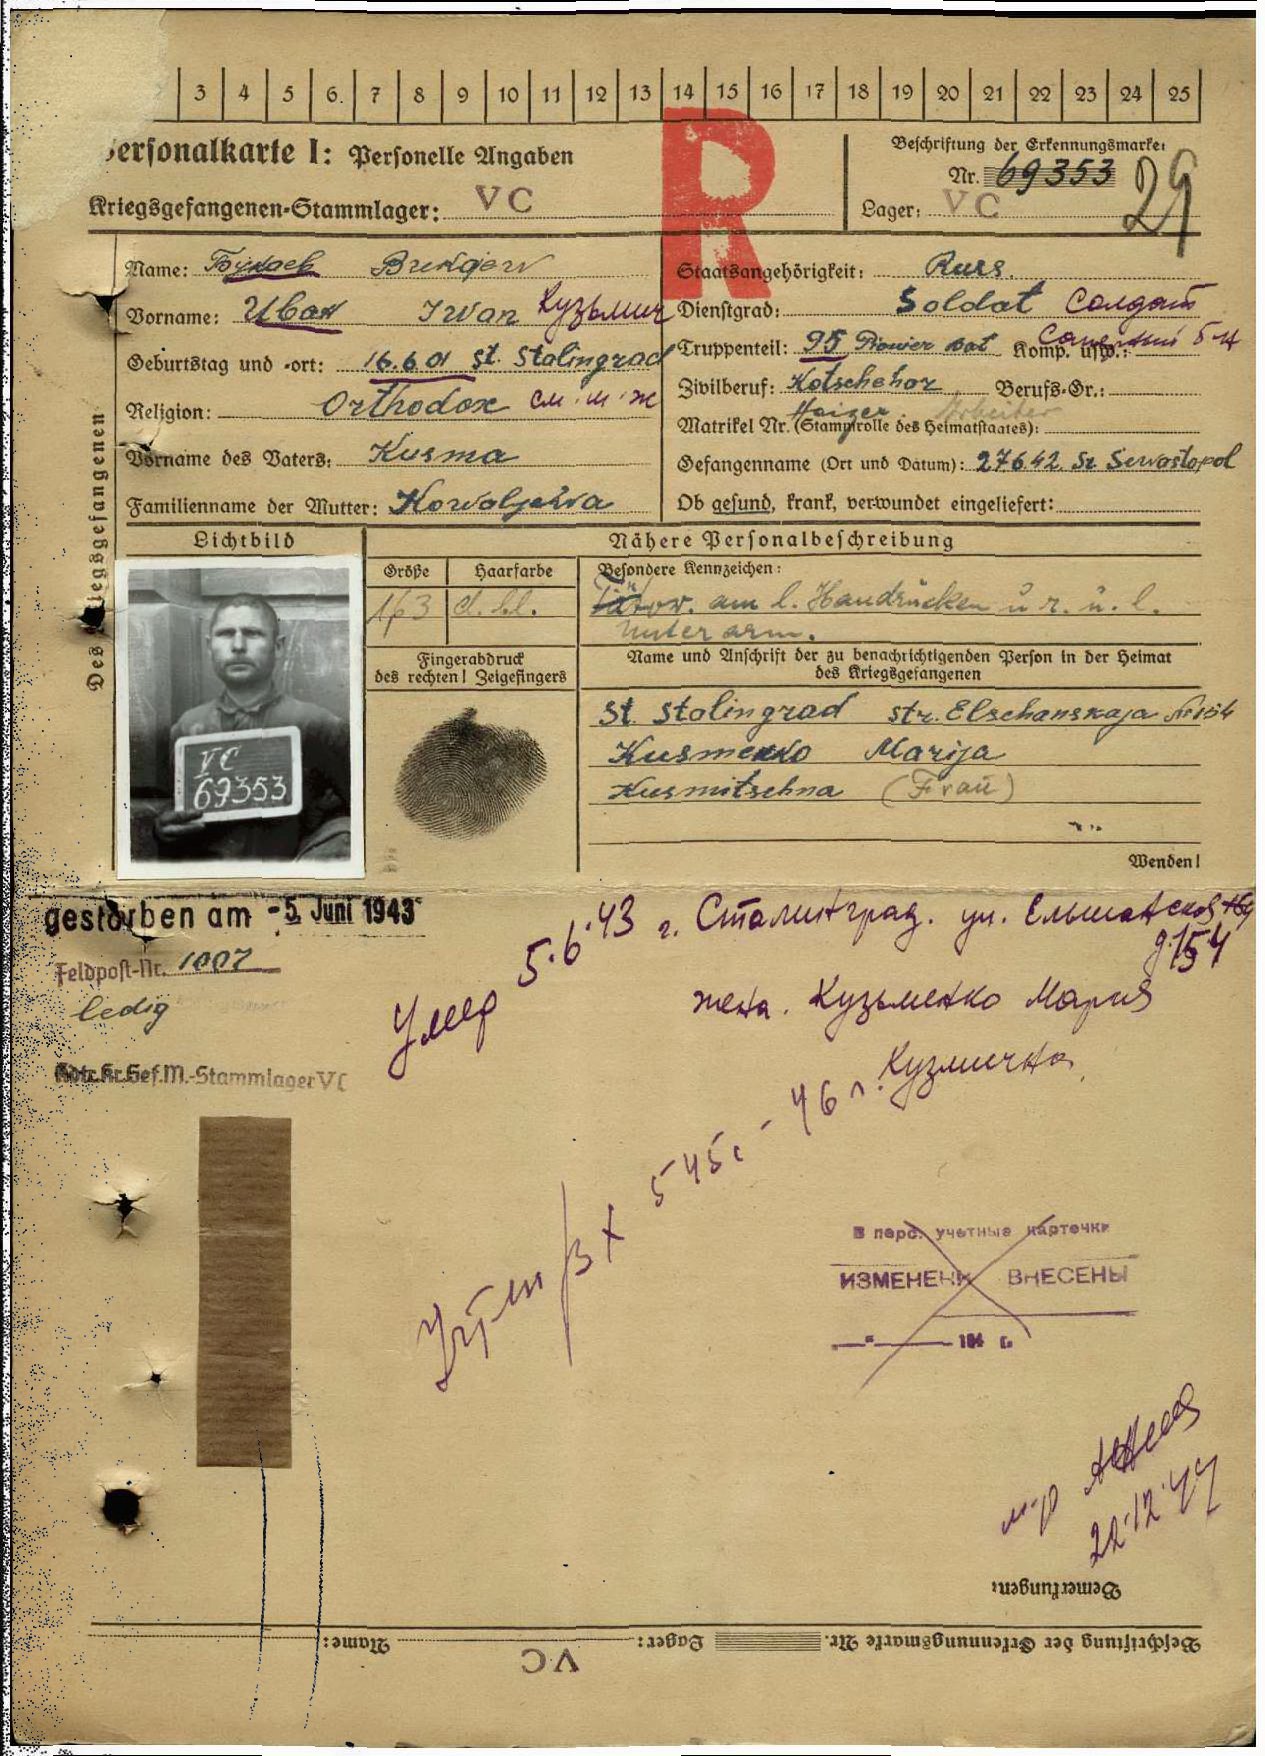 3 4 5 6. 7 8 9 10 11 12 13 14 15 16 17 18 19 20 21 22 23 24 25
Personalkarte I: Personelle Angaben
Kriegsgefangenen-Stammlager: VC
R
Beschriftung der Erkennungsmarke:
Nr. 69353
Lager: VC
29
Des Kriegsgefangenen
Name: Букаев
Vorname: Иван Iwan Кузьмич
Geburtstag und -ort: 16.6.01 St. Stalingrad
Religion: Orthodox
Vorname des Vaters: Kusma
Familienname der Mutter:
Staatsangehörigkeit: Russ.
Dienstgrad: Soldat Солдат
Truppenteil: 95 Pionier Bat Komp. usw.:
Zivilberuf: Kotschehar Berufs-Gr.:
Heizer Arbeiter
Matrikel Nr. (Stammrolle des Heimatstaates):
Gefangenname (Ort und Datum): 27.6.42. St Sewastopol
Ob gesund, krank, verwundet eingeliefert:
Lichtbild
VC
69353
Nähere Personalbeschreibung
Größe Haarfarbe Besondere Kennzeichen:
163 d. bl.
am l. Handrücken u r. u. l.
Unterarm.
Fingerabdruck
des rechten! Zeigefingers
Name und Anschrift der zu benachrichtigenden Person in der Heimat
des Kriegsgefangenen
St. Stalingrad str. Elschanskaja Nr 154
Kusmenko Marija
Kusmitschna (Frau)
Wenden!
gestorben am - 5. Juni 1943
Feldpost-Nr. 1007
ledig
Kdtr.Kr.Gef.M.-Stammlager VC
Умер 5.6.43
г. Сталинград. ул. Ельшанская
д. 154
жена. Кузьменко Мария
Кузмична
545с - 46 г.
В перс. учетные карточки
ИЗМЕНЕНИЯ ВНЕСЕНЫ
194 г.
22.12.44
Bemerkungen:
Beschriftung der Erkennungsmarke Nr. Lager: VC Name: